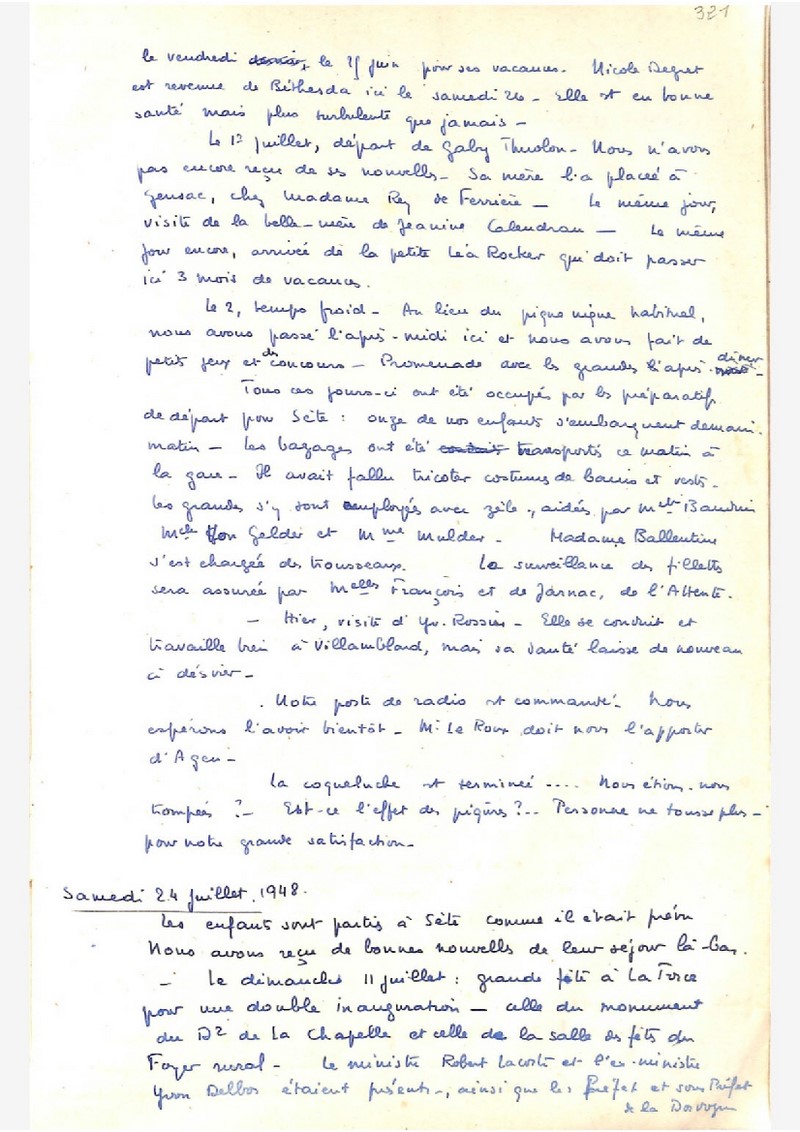 321
le vendredi le 25 juin pour ses vacances - Nicole Degret
est revenue de Béthesda ici le samedi 26 - Elle est en bonne
santé mais plus turbulente que jamais -
Le 1er juillet, départ de Gaby Thuolon - Nous n'avons
pas encore reçu de ses nouvelles - Sa mère l'a placée à
Gensac, chez Madame Rey de Ferrière - Le même jour,
visite de la belle-mère de Jeanine Calendran - Le même
jour encore, arrivée de la petite Léa Rocker qui doit passer
ici 3 mois de vacances.
Le 2, temps froid - Au lieu du pique nique habituel,
nous avons passé l'après-midi ici et nous avons fait de
petits jeux et des concours - Promenade avec les grandes l'après-dîner -
Tous ces jours-ci ont été occupés par les préparatifs
de départ pour Sète : onze de nos enfants s'embarquent demain
matin - Les bagages ont été transportés ce matin à
la gare - Il avait fallu tricoter costumes de bains et vests -
Les grandes s'y sont employées avec zèle -, aidées par Melle Baudrin
Melle Von Gelder et Mme Mulder - Madame Ballentine
s'est chargée des trousseaux. La surveillance des fillettes
sera assurée par Melles François et de Jarnac, de l'Attente.
- Hier, visite d'Yv. Rossin - Elle se conduit et
travaille bien à Villamblard, mais sa santé laisse de nouveau
à désirer -
. Notre poste de radio est commandé - Nous
espérons l'avoir bientôt - Mr Le Roux doit nous l'apporter
d'Agen -
La coqueluche est terminée .... Nous étions-nous
trompées ? - Est-ce l'effet des piqûres ? - Personne ne tousse plus -
pour notre grande satisfaction -
Samedi 24 juillet 1948.
Les enfants sont parties à Sète comme il était prévu
Nous avons reçu de bonnes nouvelles de leur séjour là-bas.
- Le dimanche 11 juillet : grande fête à La Force
pour une double inauguration - celle du monument
du Dr de La Chapelle et celle de la salle des fêtes du
Foyer rural - Le ministre Robert Lacoste et l'ex-ministre
Yvon Delbos étaient présents -, ainsi que les Préfet et sous Préfet
de la Dordogne